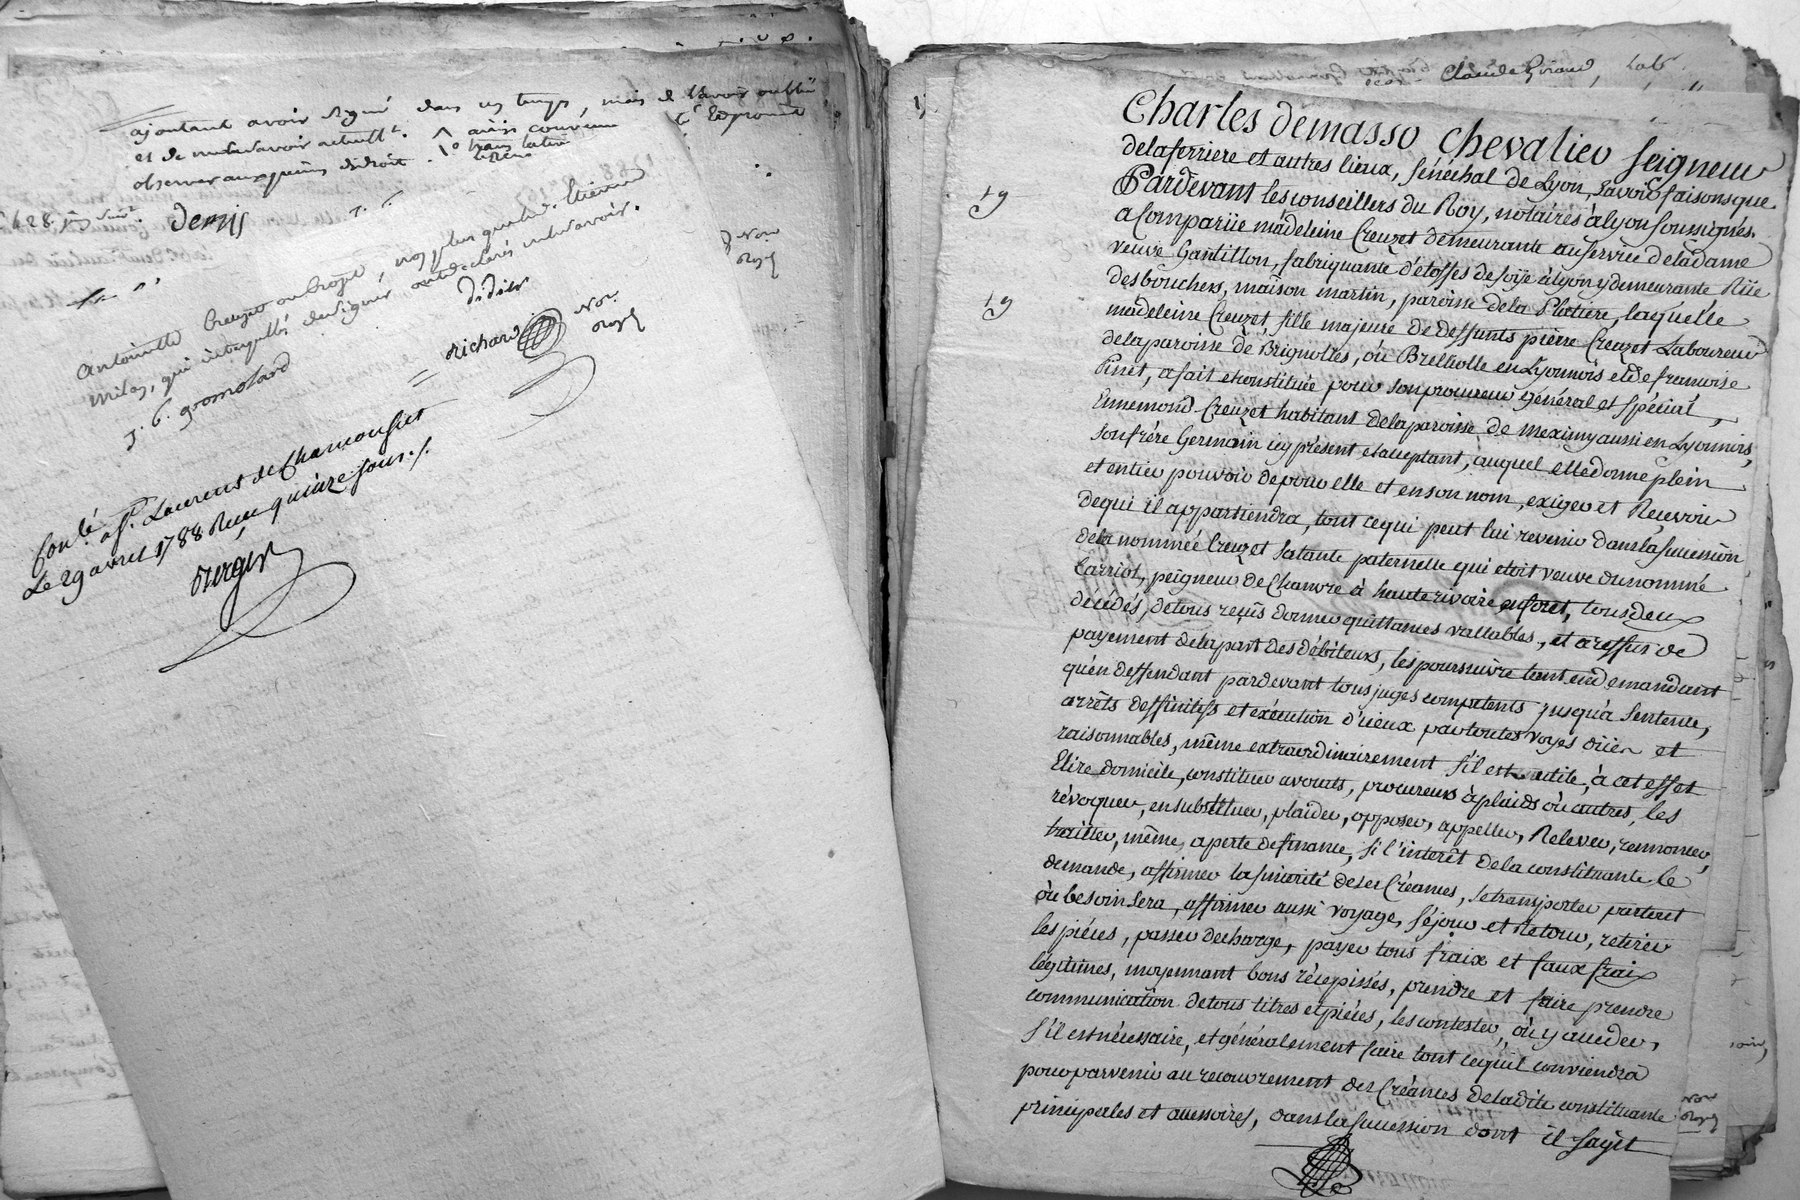 ajoutant avoir signé dans un temps, mais de l'avoir oublié
et de ne le savoir actuellt.
observer aux peines de droit.
denis
Antoinette Creuzet
qui de ce requis de signer ont déclaré ne le savoir.
didier
J. C. gromolard
Richard
Non
Royal
Conlé. à St. Laurent de Chamousset
Le 29 avril 1788 Reçu quinze sous ./.
Claude Giraud,
Charles demasso chevalier seigneur
delaferriere et autres lieux, sénéchal de Lyon, savoir faisons que
Pardevant les conseillers du Roÿ, notaires à lyon soussignés,
a Compariie madeleine Creuzet demeurante au service de la dame
veuve Gantillon, fabriquante d'étoffes de soÿe à lyon y demeurante Rüe
des bouchers, maison martin, paroisse de la Platiere, laquelle
madeleine Creuzet fille majeure de deffunts pierre Creuzet Laboureur
de la paroisse de Brignolles, ou Brulliolle en Lyonnois et de francoise
Pinet, a fait et constitué pour son procureur général et spécial,
Ennemond Creuzet habitant de la paroisse de meximy aussi en Lyonnois,
son frére Germain icy présent et acceptant, auquel elle donne plein
et entier pouvoir de pour elle et en son nom, exiger et Recevoir
de qui il appartiendra, tout ce qui peut lui revenir dans la succession
de la nommée Creuzet sa tante paternelle qui etoit veuve du nommé
Carriot, peigneur de Chanvre à hauterivoire en foret, tous deux
décédés, de tous reçûs donner quittances vallables, et a reffus de
payement de la part des débiteurs, les poursuivre tant en demandant
qu'en deffendant pardevant tous juges competents jusqu'à Sentence,
arrêts deffinitifs et exécution d'iceux par toutes voyes dües et
raisonnables, même extraordinairement s'il est utile, à cet effet
Elire domicile, constituer avocats, procureurs à plaids ou autres, les
révoquer, en substituer, plaider, opposer, appeller, Relever, rennoncer,
traitter, même, a perte de finance, si l'interêt de la constituante le
demande, affirmer la sincerité de ses Créances, se transporter partout
où besoin sera, affirmer aussi voyage, séjour et Retour, retirer
les piéces, passer decharge, payer tous fraix et faux fraix
légitimes, moyennant bons récepissés, prendre et faire prendre
communication de tous titres et piéces, les contester, ou y acceder,
s'il est nécessaire, et généralement faire tout ce qu'il conviendra
pour parvenir au recouvrement des Créances de ladite constituante
principales et accessoires, dans la succession dont il s'agit